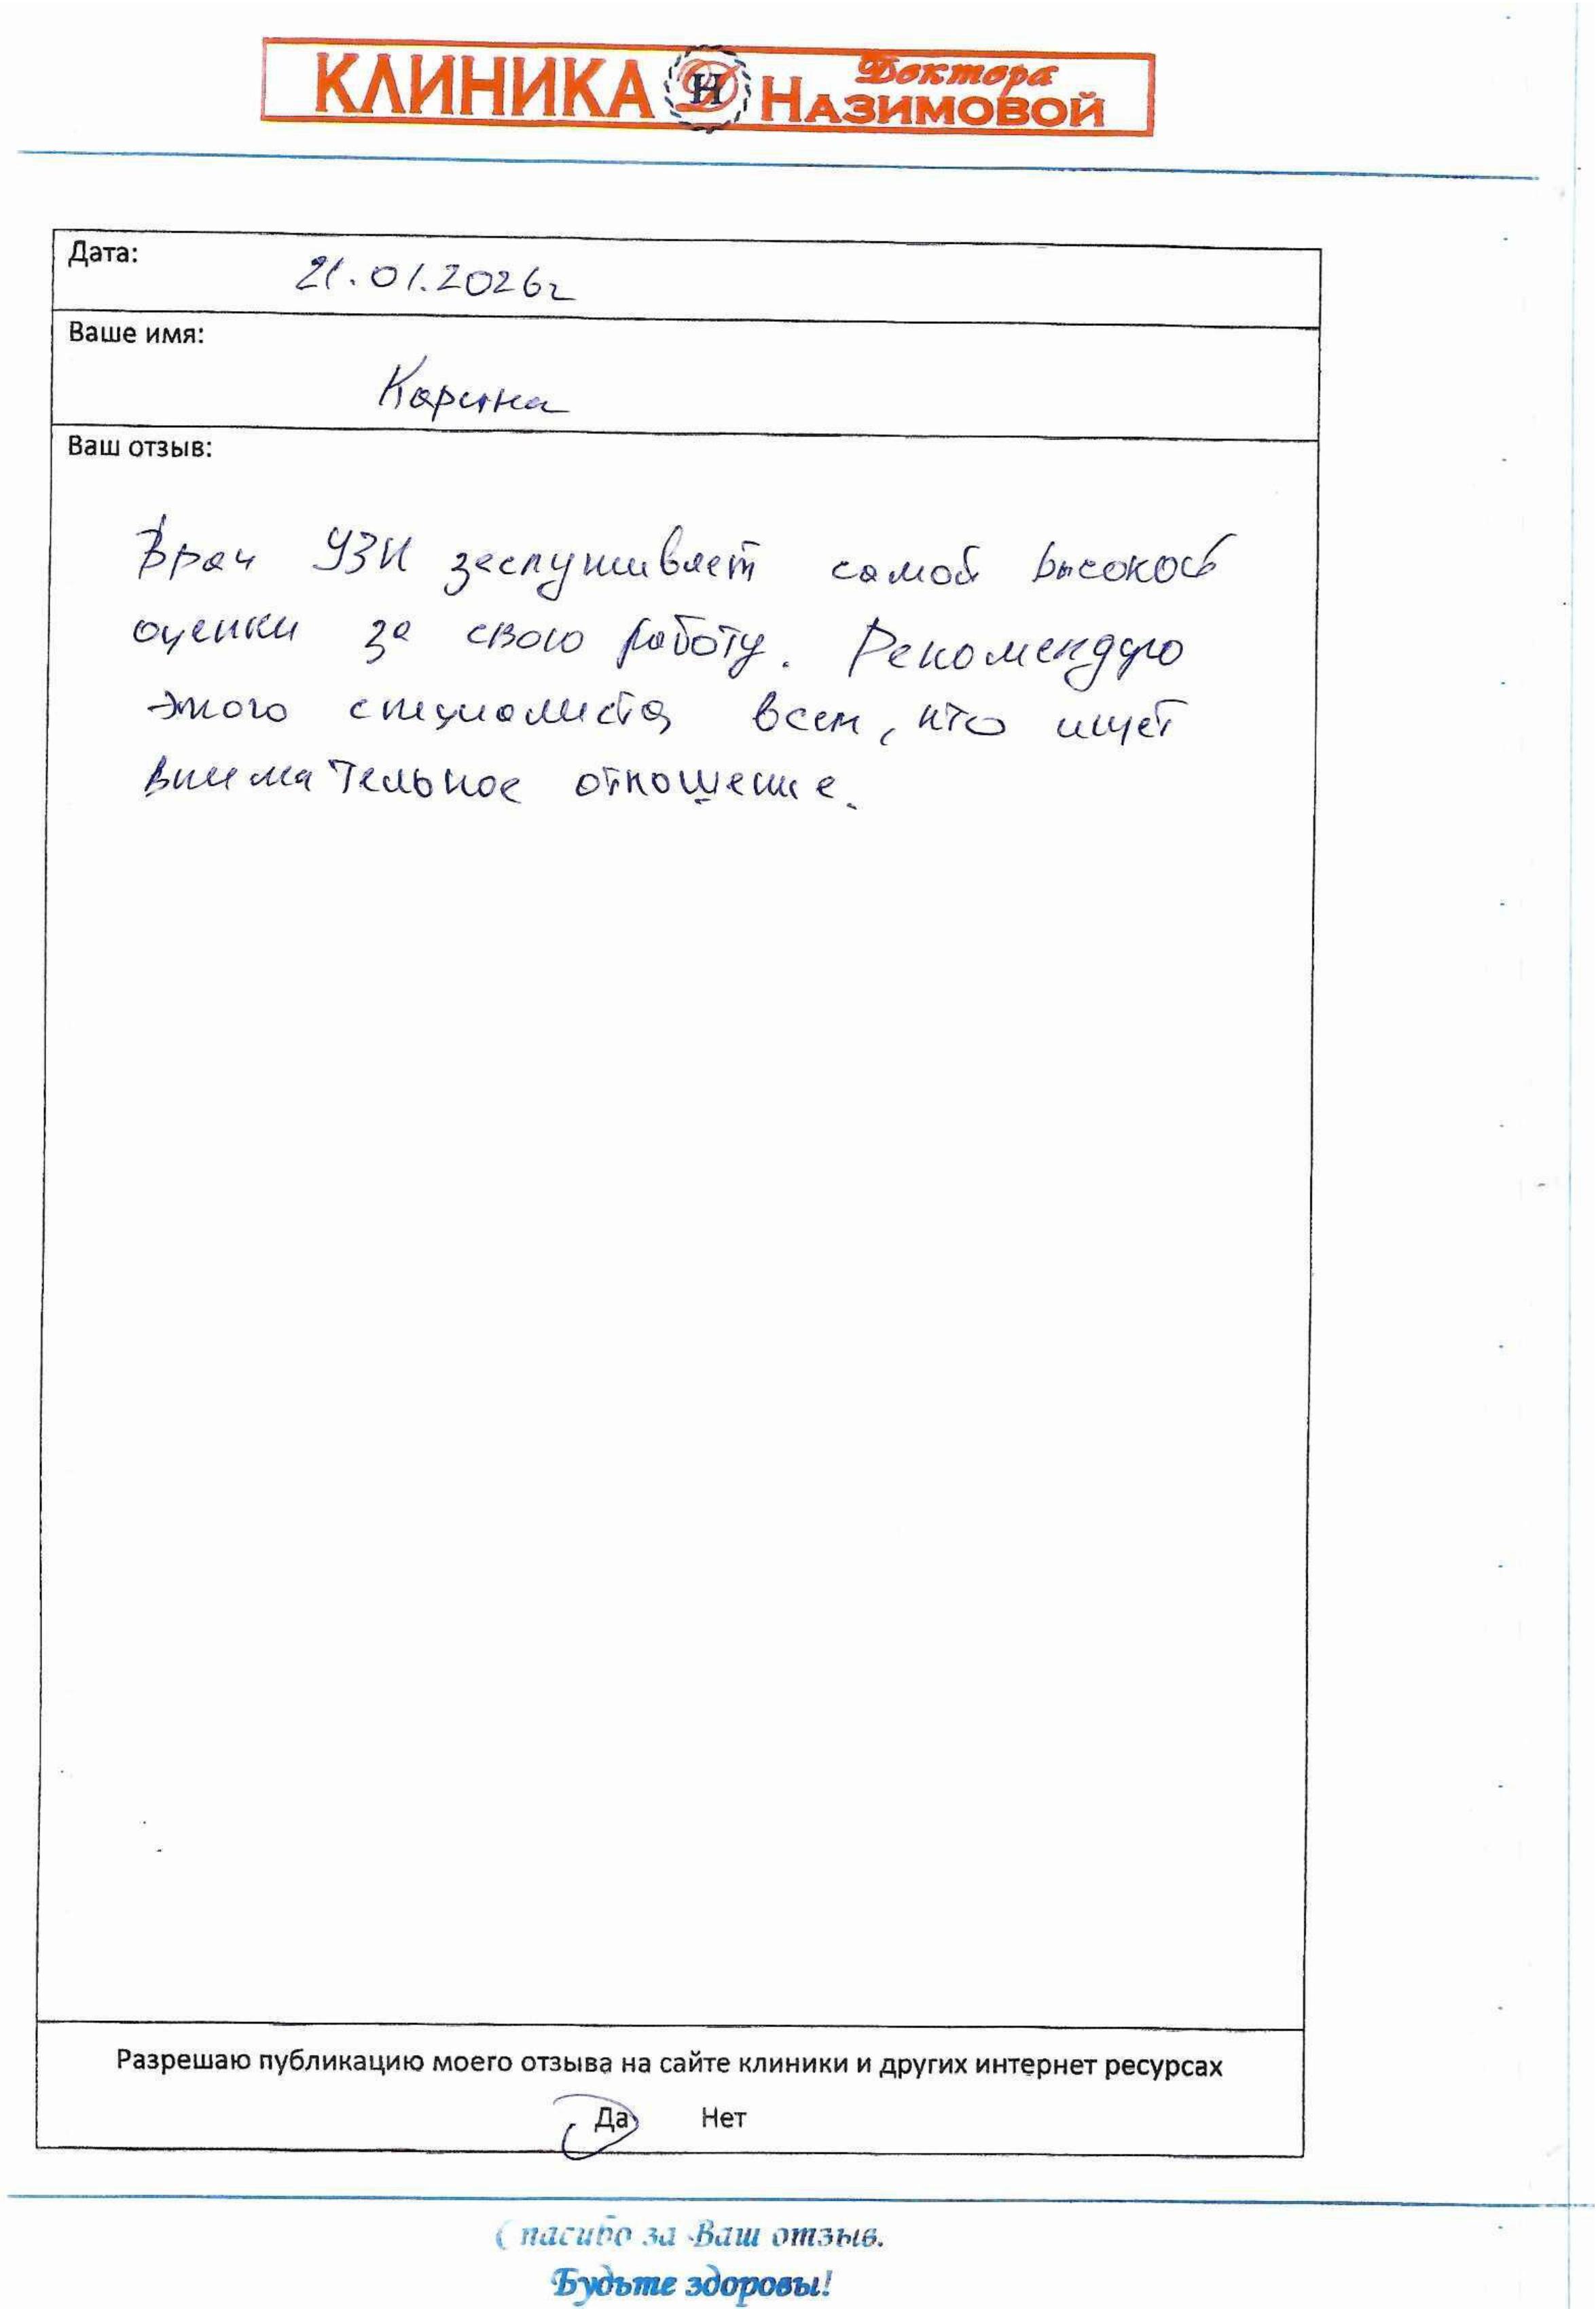 КЛИНИКА ДН Доктора НАЗИМОВОЙ
Дата:
21.01.2026г
Ваше имя:
Карина
Ваш отзыв:
Врач УЗИ заслуживает самой высокой
оценки за свою работу. Рекомендую
этого специалиста всем, кто ищет
внимательное отношение.
Разрешаю публикацию моего отзыва на сайте клиники и других интернет ресурсах
Да Нет
Спасибо за Ваш отзыв.
Будьте здоровы!